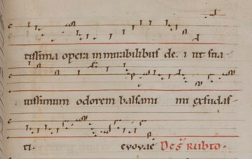 tissima opera mirabilibus de. i ut sua
uissimum odorem balsami in effudas
ti. euouae